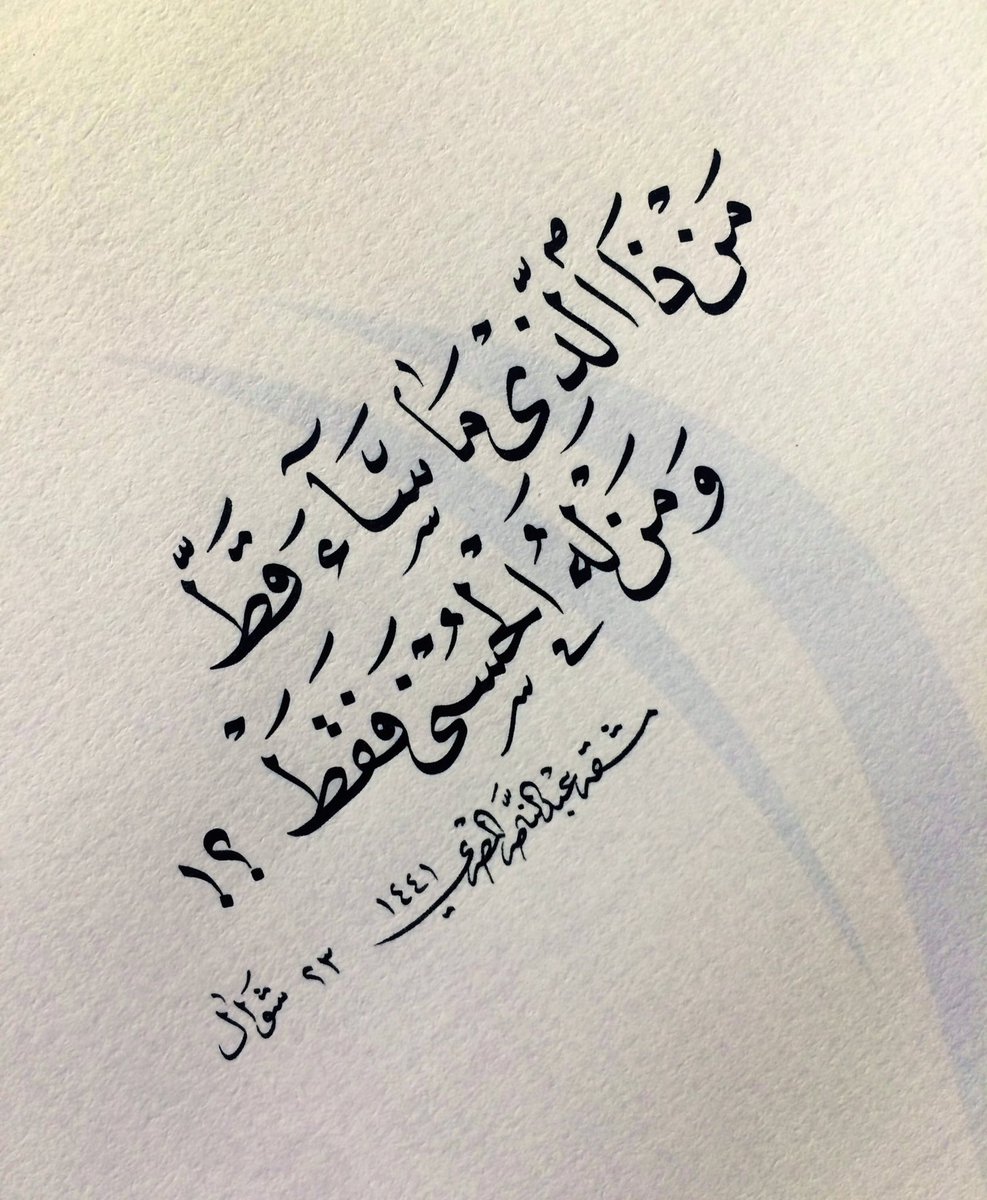 مَنْ ذَا الَّذِي مَا سَاءَ قَطُّ
وَمَنْ لَهُ الْحُسْنَى فَقَطْ
؟!
مشقه عبد الناصر المصري ١٤٤١
٢٣ شوال